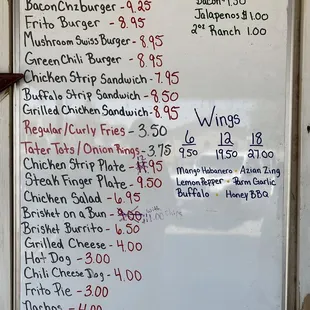 BaconChzburger - 9.25
Frito Burger - 8.95
Mushroom Swiss Burger - 8.95
Green Chili Burger - 8.95
Chicken Strip Sandwich - 7.95
Buffalo Strip Sandwich - 8.50
Grilled Chicken Sandwich - 8.95
Regular/Curly Fries - 3.50
Tater Tots/Onion Rings - 3.75
Chicken Strip Plate - .95
Steak Finger Plate - 9.50
Chicken Salad - 6.95
Brisket on a Bun - with
Brisket Burrito - 6.50
Grilled Cheese - 4.00
Hot Dog - 3.00
Chili Cheese Dog - 4.00
Frito Pie - 3.00
Nachos - 4.00
Bacon - 1.50
Jalapenos $1.00
2oz Ranch 1.00
Wings
6 12 18
9.50 19.50 27.00
Mango Habanero - Azian Zing
Lemon Pepper - Parm Garlic
Buffalo - Honey BBQ